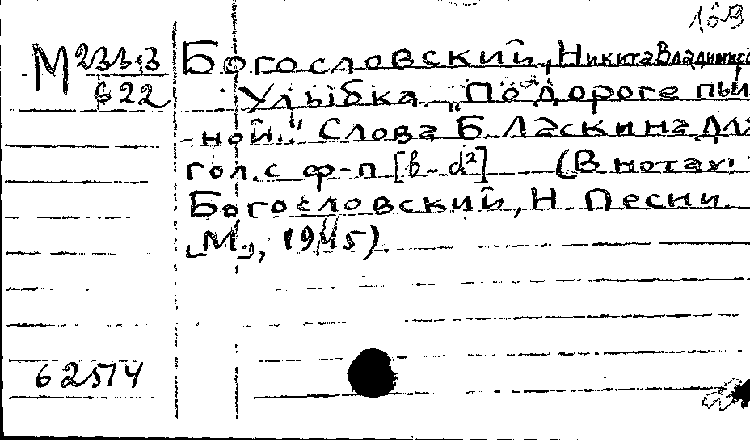 169
М 233,3 Богословский, Никита Владимиро
622 Улыбка. "По дороге пыль
-ной.." Слова Б. Ласкина для
гол. с ф-п [b-d²] (В нотах:
Богословский, Н. Песни.
М., 1945).
62514